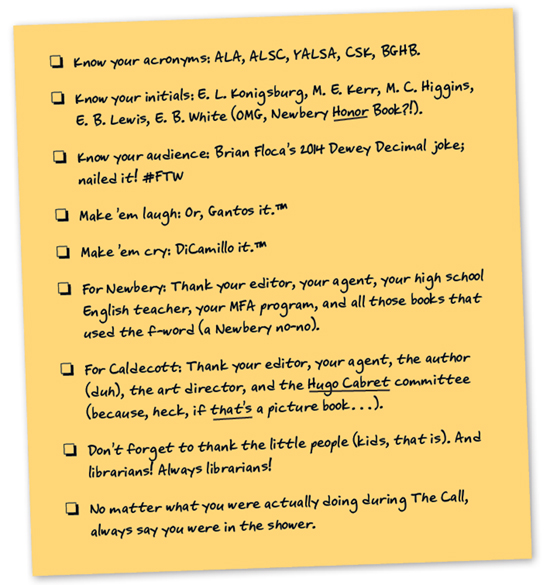 Know your acronyms: ALA, ALSC, YALSA, CSK, BGHB.
Know your initials: E. L. Konigsburg, M. E. Kerr, M. C. Higgins,
E. B. Lewis, E. B. White (OMG, Newbery Honor Book?!).
Know your audience: Brian Floca's 2014 Dewey Decimal joke;
nailed it! #FTW
Make 'em laugh: Or, Gantos it.™
Make 'em cry: DiCamillo it.™
For Newbery: Thank your editor, your agent, your high school
English teacher, your MFA program, and all those books that
used the f-word (a Newbery no-no).
For Caldecott: Thank your editor, your agent, the author
(duh), the art director, and the Hugo Cabret committee
(because, heck, if that's a picture book...).
Don't forget to thank the little people (kids, that is). And
librarians! Always librarians!
No matter what you were actually doing during The Call,
always say you were in the shower.